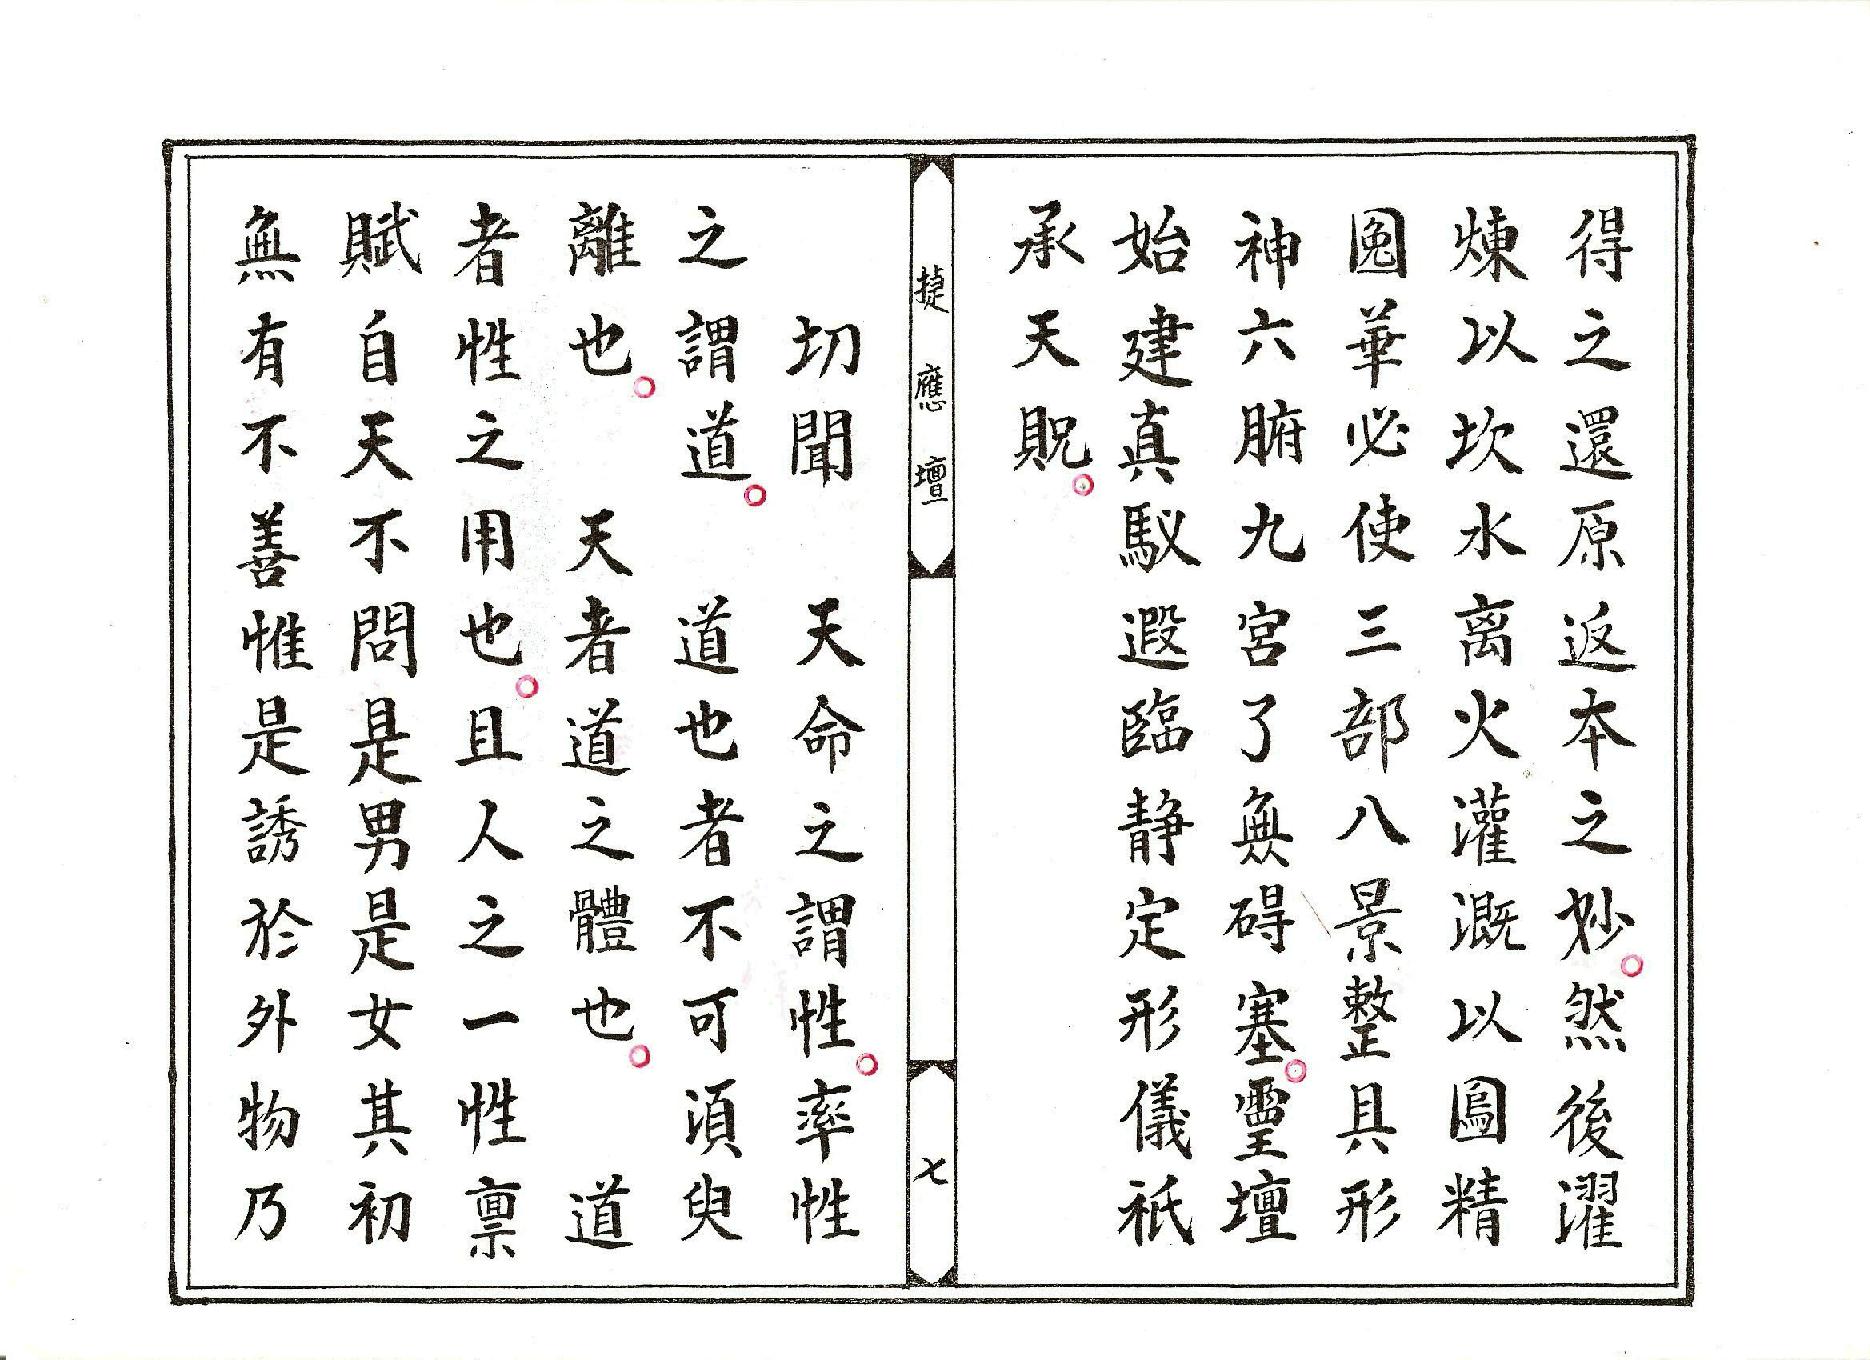 得之還原返本之妙。然後濯
煉以坎水离火灌溉以圓精
圓華必使三部八景整具形
神六腑九宮了無碍塞。靈壇
始建真馭遐臨静定形儀祇
承天貺。
捷應壇
七
切聞　天命之謂性。率性
之謂道。　道也者不可湏臾
離也。　天者道之體也。　道
者性之用也。且人之一性禀
賦自天不問是男是女其初
無有不善惟是誘於外物乃